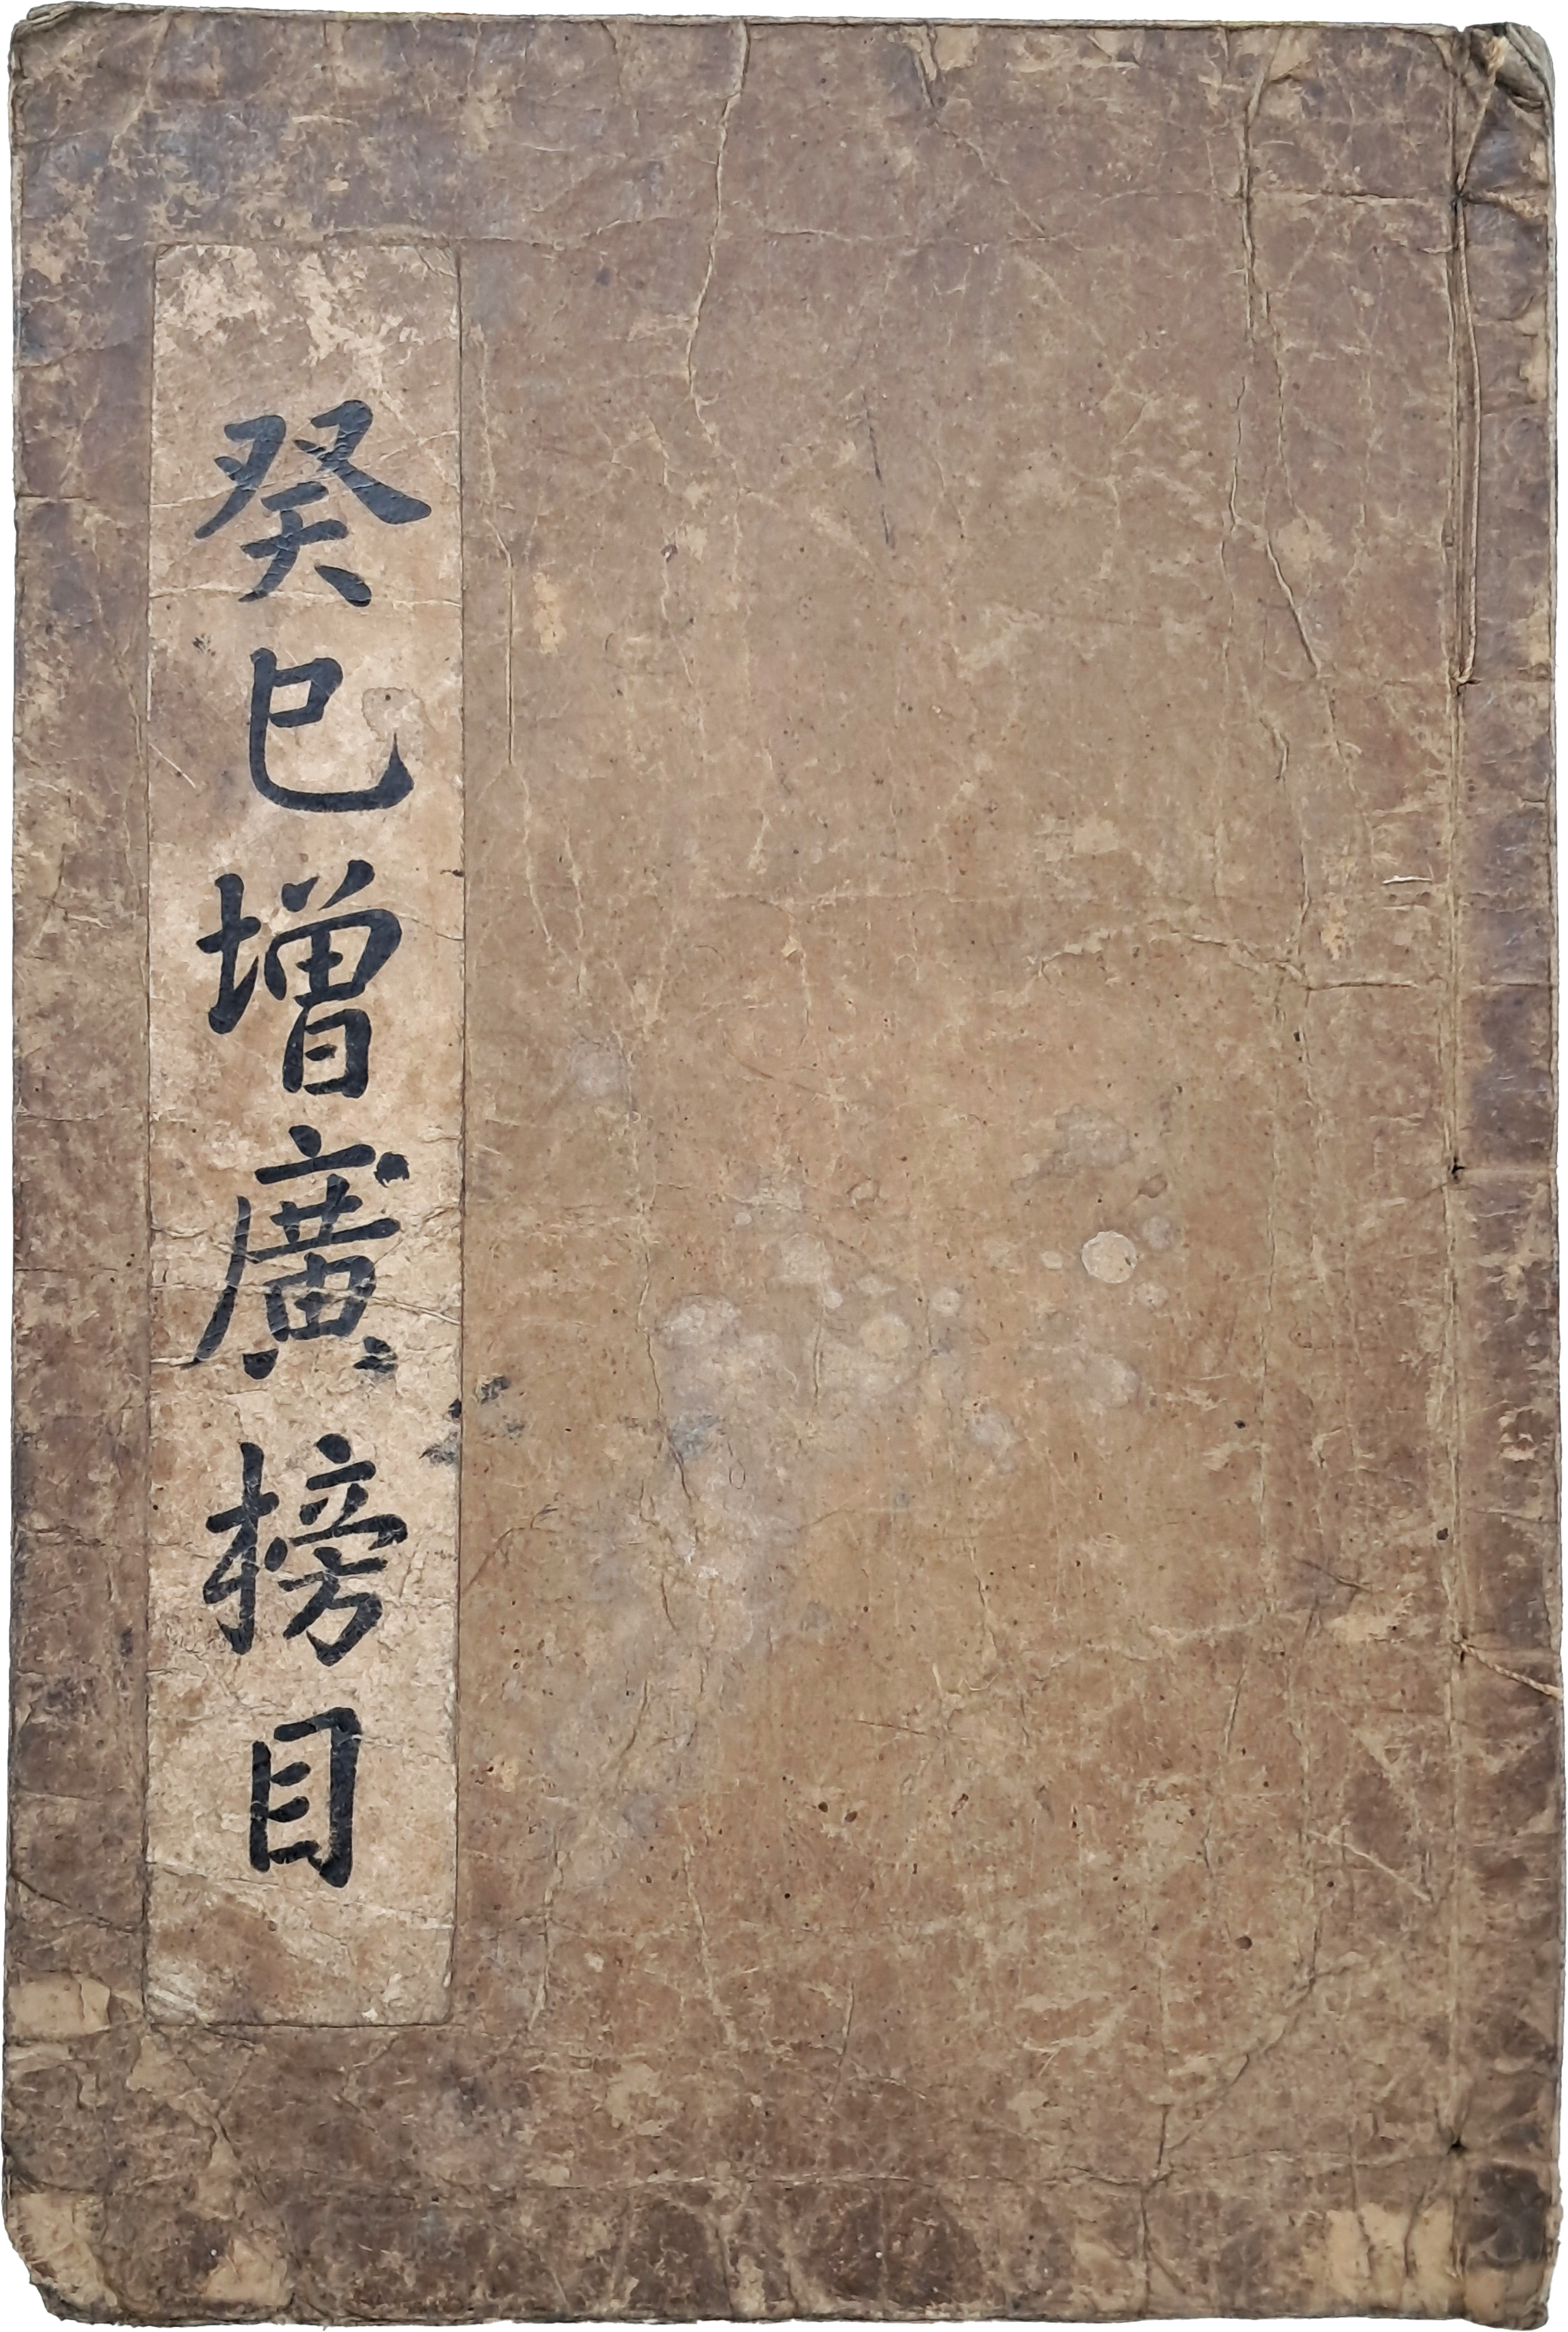 癸巳增廣榜目